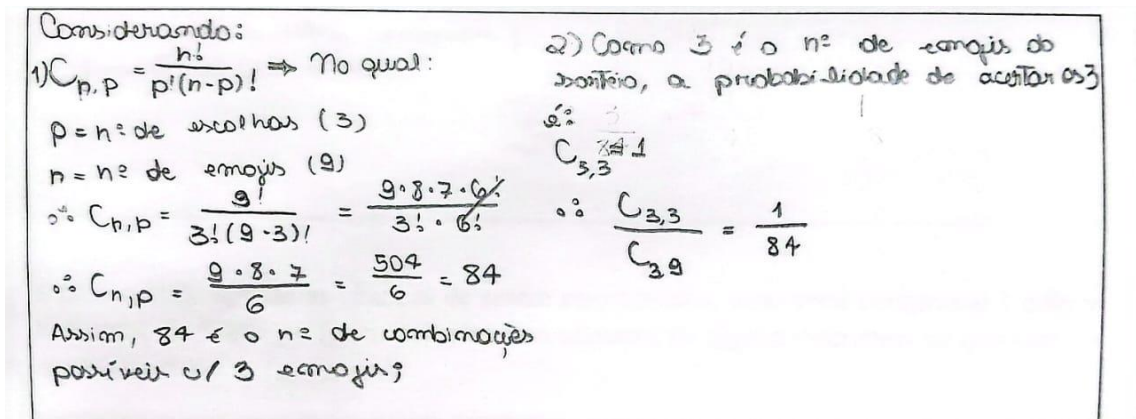 Considerando:
1) C n,p = n! / p!(n-p)! ⇒ No qual:
p = nº de escolhas (3)
n = nº de emojis (9)
∴ C n,p = 9! / 3!(9-3)! = 9·8·7·6! / 3!·6!
∴ C n,p = 9·8·7 / 6 = 504 / 6 = 84
Assim, 84 é o nº de combinações
possíveis c/ 3 emojis;
2) Como 3 é o nº de emojis do
sorteio, a probabilidade de acertar os 3
é:
C 3,3 = 1
∴ C 3,3 / C 3 9 = 1 / 84